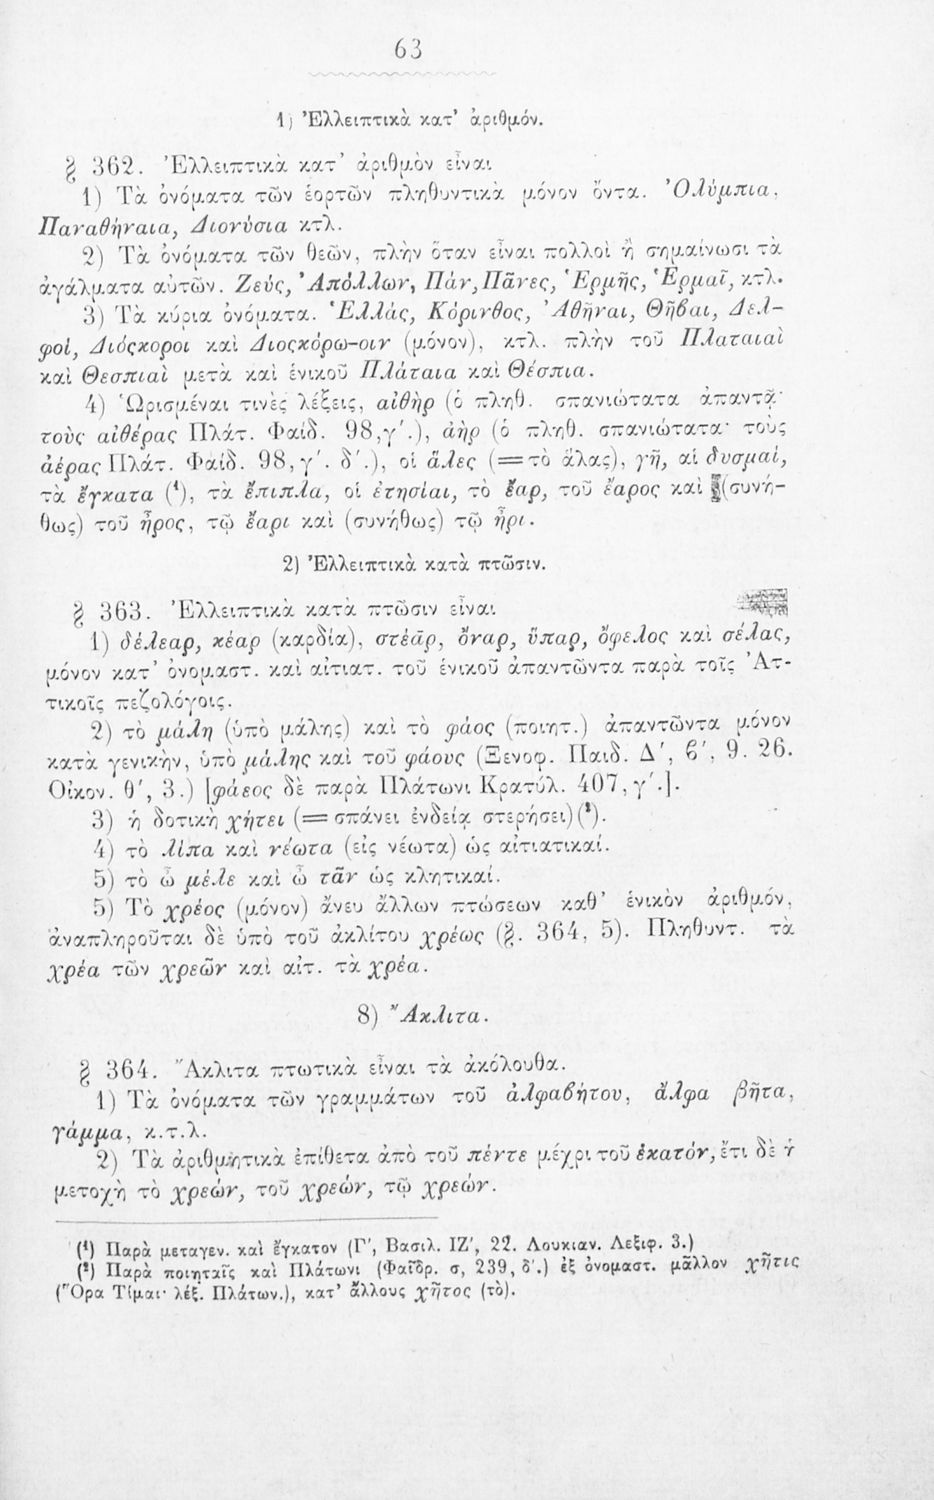 63
1) Ἐλλειπτικὰ κατ' ἀριθμόν.
§ 362. Ἐλλειπτικὰ κατ' ἀριθμὸν εἶναι
1) Τὰ ὀνόματα τῶν ἑορτῶν πληθυντικὰ μόνον ὄντα. Ὀλύμπια,
Παναθήναια, Διονύσια κτλ.
2) Τὰ ὀνόματα τῶν θεῶν, πλὴν ὅταν εἶναι πολλοὶ ἢ σημαίνωσι τὰ
ἀγάλματα αὐτῶν. Ζεύς, Ἀπόλλων, Πάν, Πᾶνες, Ἑρμῆς, Ἑρμαῖ, κτλ.
3) Τὰ κύρια ὀνόματα. Ἑλλάς, Κόρινθος, Ἀθῆναι, Θῆβαι, Δελ-
φοί, Διόςκοροι καὶ Διοςκόρω-οιν (μόνον), κτλ. πλὴν τοῦ Πλαταιαὶ
καὶ Θεσπιαὶ μετὰ καὶ ἑνικοῦ Πλάταια καὶ Θέσπια.
4) Ὡρισμέναι τινὲς λέξεις, αἰθὴρ (ὁ πληθ. σπανιώτατα ἀπαντᾷ·
τοὺς αἰθέρας Πλάτ. Φαίδ. 98,γ'.), ἀὴρ (ὁ πληθ. σπανιώτατα· τοὺς
ἀέρας Πλάτ. Φαίδ. 98,γ'. δ'.), οἱ ἅλες (=τὸ ἅλας), γῆ, αἱ δυσμαί,
τὰ ἔγκατα (¹), τὰ ἔπιπλα, οἱ ἐτησίαι, τὸ ἔαρ, τοῦ ἔαρος καὶ (συνή-
θως) τοῦ ἦρος, τῷ ἔαρι καὶ (συνήθως) τῷ ἦρι.
2) Ἐλλειπτικὰ κατὰ πτῶσιν.
§ 363. Ἐλλειπτικὰ κατὰ πτῶσιν εἶναι
1) δέλεαρ, κέαρ (καρδία), στέᾱρ, ὄναρ, ὕπαρ, ὄφελος καὶ σέλας,
μόνον κατ' ὀνομαστ. καὶ αἰτιατ. τοῦ ἑνικοῦ ἀπαντῶντα παρὰ τοῖς Ἀτ-
τικοῖς πεζολόγοις.
2) τὸ μάλη (ὑπὸ μάλης) καὶ τὸ φάος (ποιητ.) ἀπαντῶντα μόνον
κατὰ γενικήν, ὑπὸ μάλης καὶ τοῦ φάους (Ξενοφ. Παιδ. Δ', ϐ', 9. 26.
Οἰκον. θ', 3.) [φάεος δὲ παρὰ Πλάτωνι Κρατύλ. 407,γ'.].
3) ἡ δοτικὴ χήτει (=σπάνει ἐνδείᾳ στερήσει)(²).
4) τὸ λίπα καὶ νέωτα (εἰς νέωτα) ὡς αἰτιατικαί.
5) τὸ ὦ μέλε καὶ ὦ τᾶν ὡς κλητικαί.
5) Τὸ χρέος (μόνον) ἄνευ ἄλλων πτώσεων καθ' ἑνικὸν ἀριθμόν,
ἀναπληροῦται δὲ ὑπὸ τοῦ ἀκλίτου χρέως (§. 364, 5). Πληθυντ. τὰ
χρέα τῶν χρεῶν καὶ αἰτ. τὰ χρέα.
8) Ἄκλιτα.
§ 364. Ἄκλιτα πτωτικὰ εἶναι τὰ ἀκόλουθα.
1) Τὰ ὀνόματα τῶν γραμμάτων τοῦ ἀλφαϐήτου, ἄλφα βῆτα,
γάμμα, κ.τ.λ.
2) Τὰ ἀριθμητικὰ ἐπίθετα ἀπὸ τοῦ πέντε μέχρι τοῦ ἑκατόν, ἔτι δὲ ἡ
μετοχὴ τὸ χρεών, τοῦ χρεών, τῷ χρεών.
(¹) Παρὰ μεταγεν. καὶ ἔγκατον (Γ', Βασιλ. ΙΖ', 22. Λουκιαν. Λεξιφ. 3.)
(²) Παρὰ ποιηταῖς καὶ Πλάτωνι (Φαῖδρ. σ, 239, δ'.) ἐξ ὀνομαστ. μᾶλλον χῆτις
(Ὅρα Τίμαι· λέξ. Πλάτων.), κατ' ἄλλους χῆτος (τὸ).